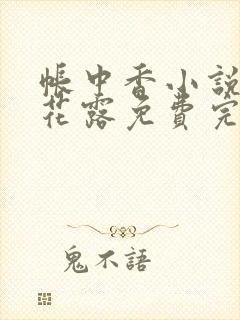 帳中香小說
花露免費完
鬼不語